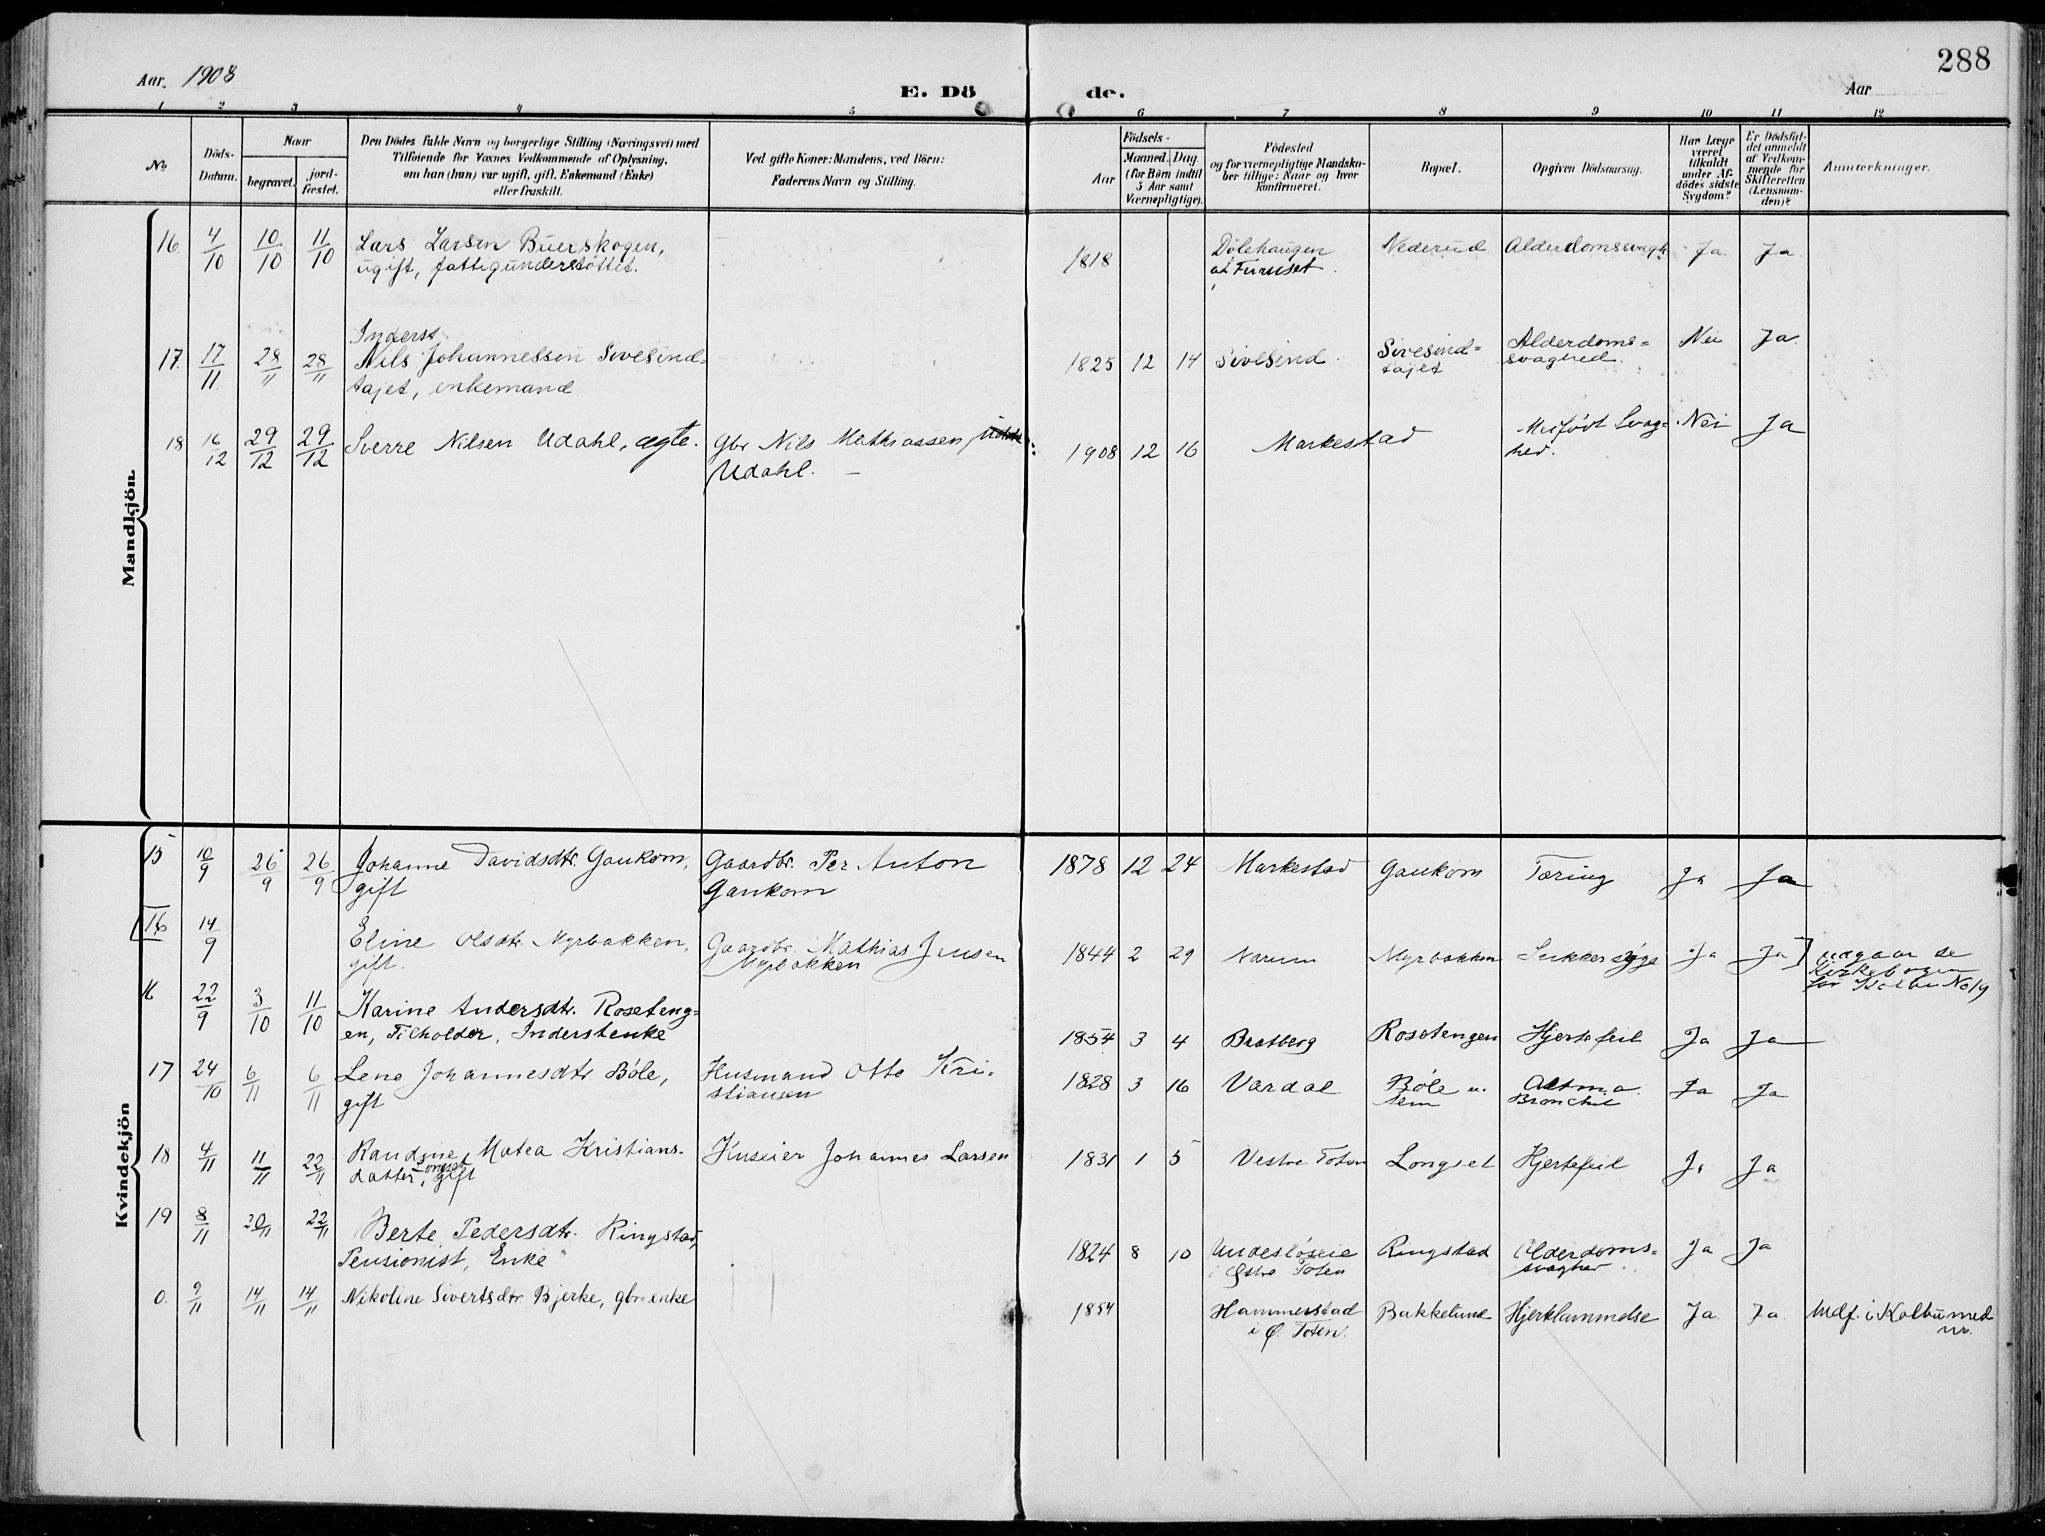 Aar 1908
E. Dö
de.
Aar
288
1 2 3 4 5 6 7 8 9 10 11 12
No.
Döds-
Datum.
Naar
begravet.
jord-
fæstet.
Den Dödes fulde Navn og borgerlige Stilling (Næringsvei) med
Tilföiende for Voxnes Vedkommende af Oplysning,
om han (hun) var ugift, gift, Enkemand (Enke)
eller fraskilt.
Ved gifte Koner: Mandens, ved Börn:
Faderens Navn og Stilling.
Födsels-
Aar
Maaned. Dag.
(for Börn indtil
5 Aar samt
Værnepligtige).
Födested
og for værnepligtige Mandska-
ber tillige: Naar og hvor
konfirmeret.
Bopæl.
Opgiven Dödsaarsag.
Har Læge
været
tilkaldt
under Af-
dödes sidste
Sygdom?
Er Dödsfal-
det anmeldt
af Vedkom-
mende for
Skifteretten
(Lensman-
den)?
Anmerkninger.
Mandkjön.
16. 4/10 10/10 11/10 Lars Larsen Buerskogen,
ugift, fattigunderstøttet.
1818 Dölehaugen
at Furuset. Nederud Alderdomssvagh. Ja Ja
17. 17/11 28/11 28/11 Inderst
Nils Johannessen Sivesind-
tajet, enkemand
1825 12 14 Sivesind. Sivesind-
tajet Alderdoms-
svaghed. Nei Ja
18 16/12 29/12 29/12 Sverre Nilsen Udahl, ægte. Gbr Nils Mathiassen
Udahl. —
1908 12 16 Markestad Medfödt Svag-
hed. Nei Ja
Kvindekjön
15 10/9 26/9 26/9 Johanne Davidsdtr. Gaukom,
gift
Gaardbr. Per Anton
Gaukom
1878 12 24 Markestad Gaukom Tæring Ja Ja
16 14/9 Eline Olsdtr. Myrbakken,
gift.
Gaardbr. Mathias Jensen
Myrbakken
1844 2 29 Narum Myrbakken Sukkersyge Ja Ja udgaar se
Kirkebogen
for Kolbu No 19
16 22/9 3/10 11/10 Karine Andersdtr. Roseteng-
en, Tilholder, Inderstenke
1854 3 4 Bratberg Rosetengen Hjertefeil Ja Ja
17 24/10 6/11 6/11 Lene Johannesdtr. Böle,
gift
Husmand Otto Kri-
stiansen
1828 3 16 Vardal Böle u.
Sem Astma
Bronchit Ja Ja
18 4/11 11/11 22/11 Randine Matea Kristians-
datter Longset, gift
Huseier Johannes Larsen
1831 1 5 Vestre Toten Longset Hjertefeil Ja Ja
19 8/11 20/11 22/11 Berte Pedersdtr. Ringstad,
Pensionist, Enke
1824 8 10
i Østre Toten Ringstad Alderdoms-
svaghed. Ja Ja
0. 9/11 14/11 14/11 Nikoline Sivertsdtr. Bjerke, gbr-enke
1854 Hammerstad
i Ø. Toten. Bakkelund Hjertelammelse Ja. Ja. Indf. i Kolbu med
nr.